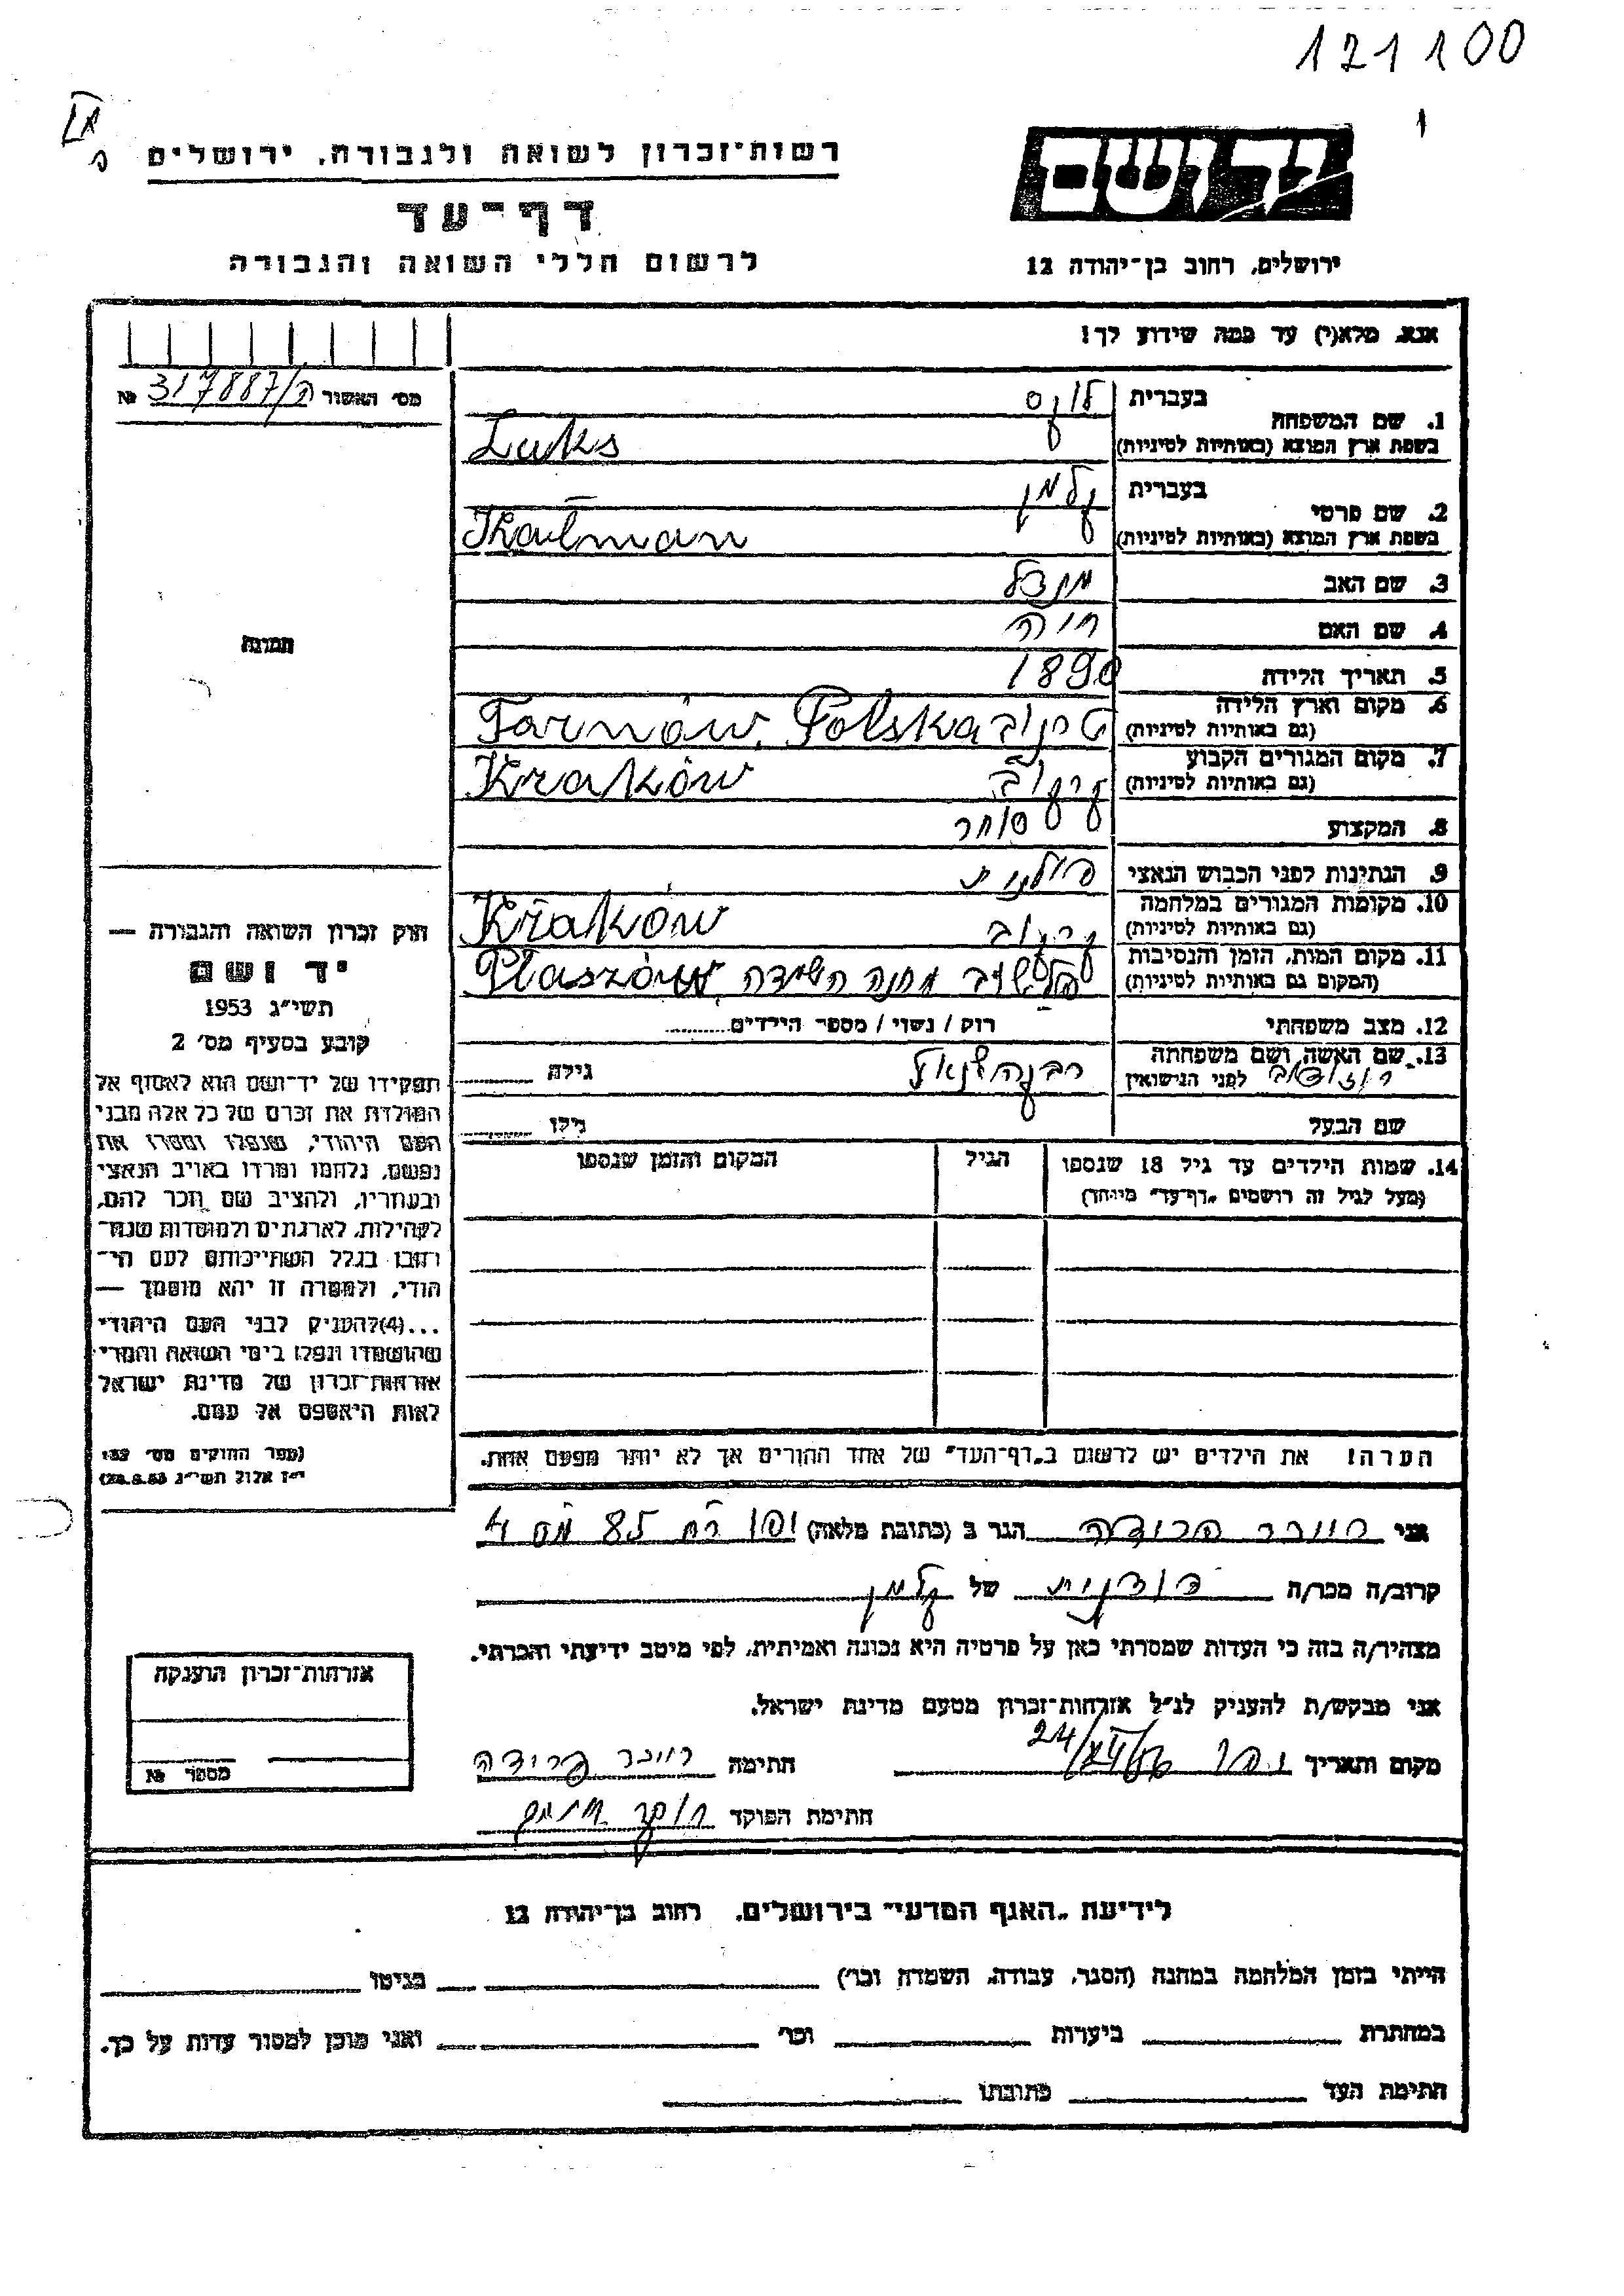 121100
רשות־זכרון לשואה ולגבורה, ירושלים
דף־עד
לרשום חללי השואה והגבורה
יד ושם
ירושלים, רחוב בן־יהודה 12
אנא, מלא(י) עד כמה שידוע לך!
מס' האשור № 317887/ה
1. שם המשפחה בעברית לוקס
בשפת ארץ המוצא (באותיות לטיניות) Luks
2. שם פרטי בעברית קלמן
בשפת ארץ המוצא (באותיות לטיניות) Kalman
3. שם האב מנדל
4. שם האם חוה
5. תאריך הלידה 1890
6. מקום וארץ הלידה
(גם באותיות לטיניות) טרנוב Tarnów, Polska
7. מקום המגורים הקבוע
(גם באותיות לטיניות) קרקוב Kraków
8. המקצוע סוחר
9. הנתינות לפני הכבוש הנאצי פולנית
10. מקומות המגורים במלחמה
(גם באותיות לטיניות) קרקוב Kraków
11. מקום המות, הזמן והנסיבות
(המקום גם באותיות לטיניות) פלשוב מחנה השמדה Płaszów
12. מצב משפחתי רוק / נשוי / מספר הילדים
13. שם האשה ושם משפחתה
לפני הנישואין גילה
שם הבעל גילו
14. שמות הילדים עד גיל 18 שנספו הגיל המקום והזמן שנספו
(מעל לגיל זה רושמים „דף־עד" מיוחד)
הערה! את הילדים יש לרשום ב„דף־העד" של אחד ההורים אך לא יותר מפעם אחת.
תמונה
חוק זכרון השואה והגבורה —
יד ושם
תשי"ג 1953
קובע בסעיף מס' 2
תפקידו של יד־ושם הוא לאסוף אל
המולדת את זכרם של כל אלה מבני
העם היהודי, שנפלו ומסרו את
נפשם, נלחמו ומרדו באויב הנאצי
ובעוזריו, ולהציב שם וזכר להם,
לקהילות, לארגונים ולמוסדות שנח־
רבו בגלל השתייכותם לעם הי־
הודי, ולמטרה זו יהא מוסמך —
...(4) להעניק לבני העם היהודי
שהושמדו ונפלו בימי השואה והמרי
אזרחות־זכרון של מדינת ישראל
לאות היאספם אל עמם.
(ספר החוקים מס' 132
י"ז אלול תשי"ג 28.8.53)
אני הוובר פרידה הגר ב (כתובת מלאה) יפו רח 85 מס 4
קרוב/ה מכר/ה דודנית של קלמן
מצהיר/ה בזה כי העדות שמסרתי כאן על פרטיה היא נכונה ואמיתית, לפי מיטב ידיעתי והכרתי.
אני מבקש/ת להעניק לנ"ל אזרחות־זכרון מטעם מדינת ישראל.
מקום ותאריך חתימה פרידה
חתימת הפוקד
אזרחות־זכרון הוענקה
מספר №
לידיעת „האגף המדעי" בירושלים, רחוב בן־יהודה 12
הייתי בזמן המלחמה במחנה (הסגר, עבודה, השמדה וכו') בגיטו
במחתרת ביערות וכו' ואני מוכן למסור עדות על כך.
חתימת העד כתובתו